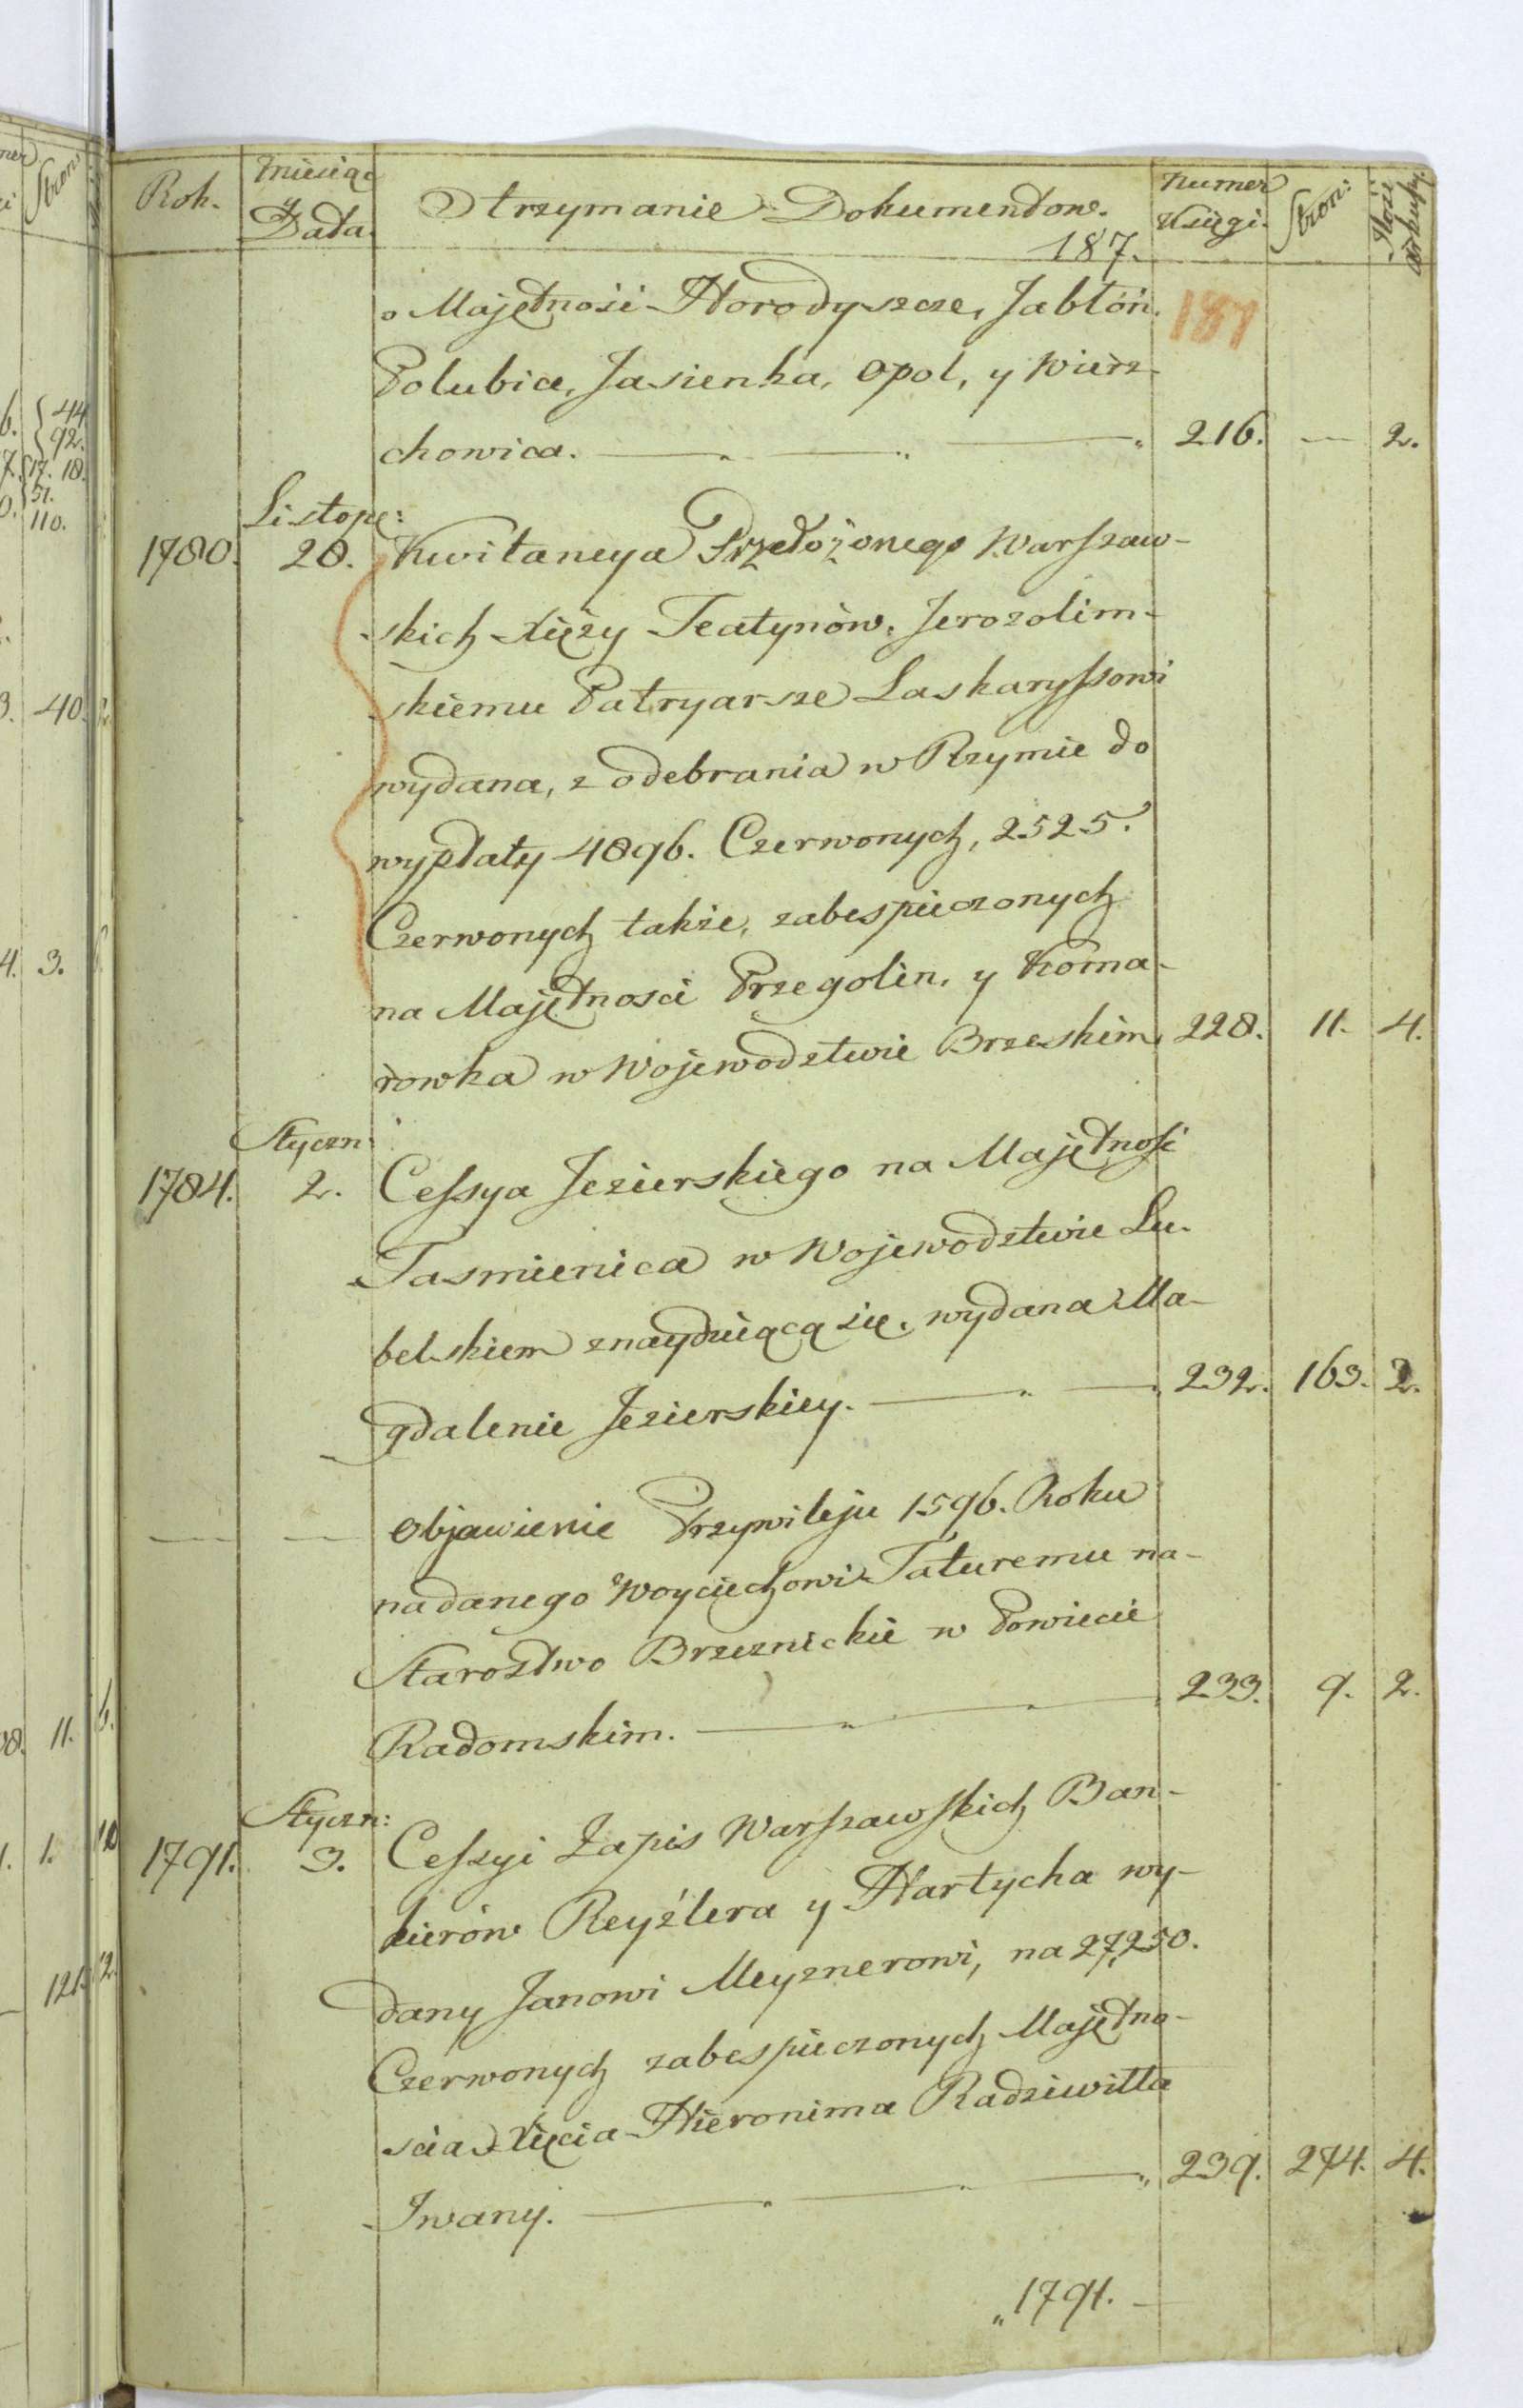 Rok.
Miesiąc
y
Data.
Otrzymanie Dokumentow.
187.
Numer
Księgi.
Stron:
Ilość
arkuszy.
187
o Majętności Horodyszcze, Jabłoń.
Polubice, Jasienka, Opol, y Wierz-
chowica. 216. — 2.
Listop:
1780. 28. Kwitancya Przełożonego Warszaw-
skich Xięży Teatynów, Jerozolim-
skiemu Patryarsze Laskaryssowi
wydana, z odebrania w Rzymie do
wypłaty 4896. Czerwonych, 2525.
Czerwonych także, zabespieczonych
na Majętnosci Przegolin, y Koma-
rowka w Wojewodztwie Brzeskim 228. 11. 4.
Styczn:
1784. 2. Cessya Jezierskiego na Majętność
Tasmienica w Wojewodztwie Lu-
belskiem znayduiącą się, wydana Ma-
gdalenie Jezierskiey. 232. 163. 2.
— — Objawienie Przywileju 1596. Roku
nadanego Woyciechowi Taturemu na-
Starostwo Brzeznickie w Powiecie
Radomskim. 233. 9. 2.
Styczn:
1791. 3. Cessyi Zapis Warszawskich Ban-
kierów Reyźlera y Hartycha wy-
dany Janowi Meyznerowi, na 27,250.
Czerwonych zabespieczonych Majętno-
scia Xięcia Hieronima Radziwiłła
Iwany. 239. 274. 4.
„1791. —
44
92.
17. 18.
51.
110.
40.
3.
11.
1.
121.